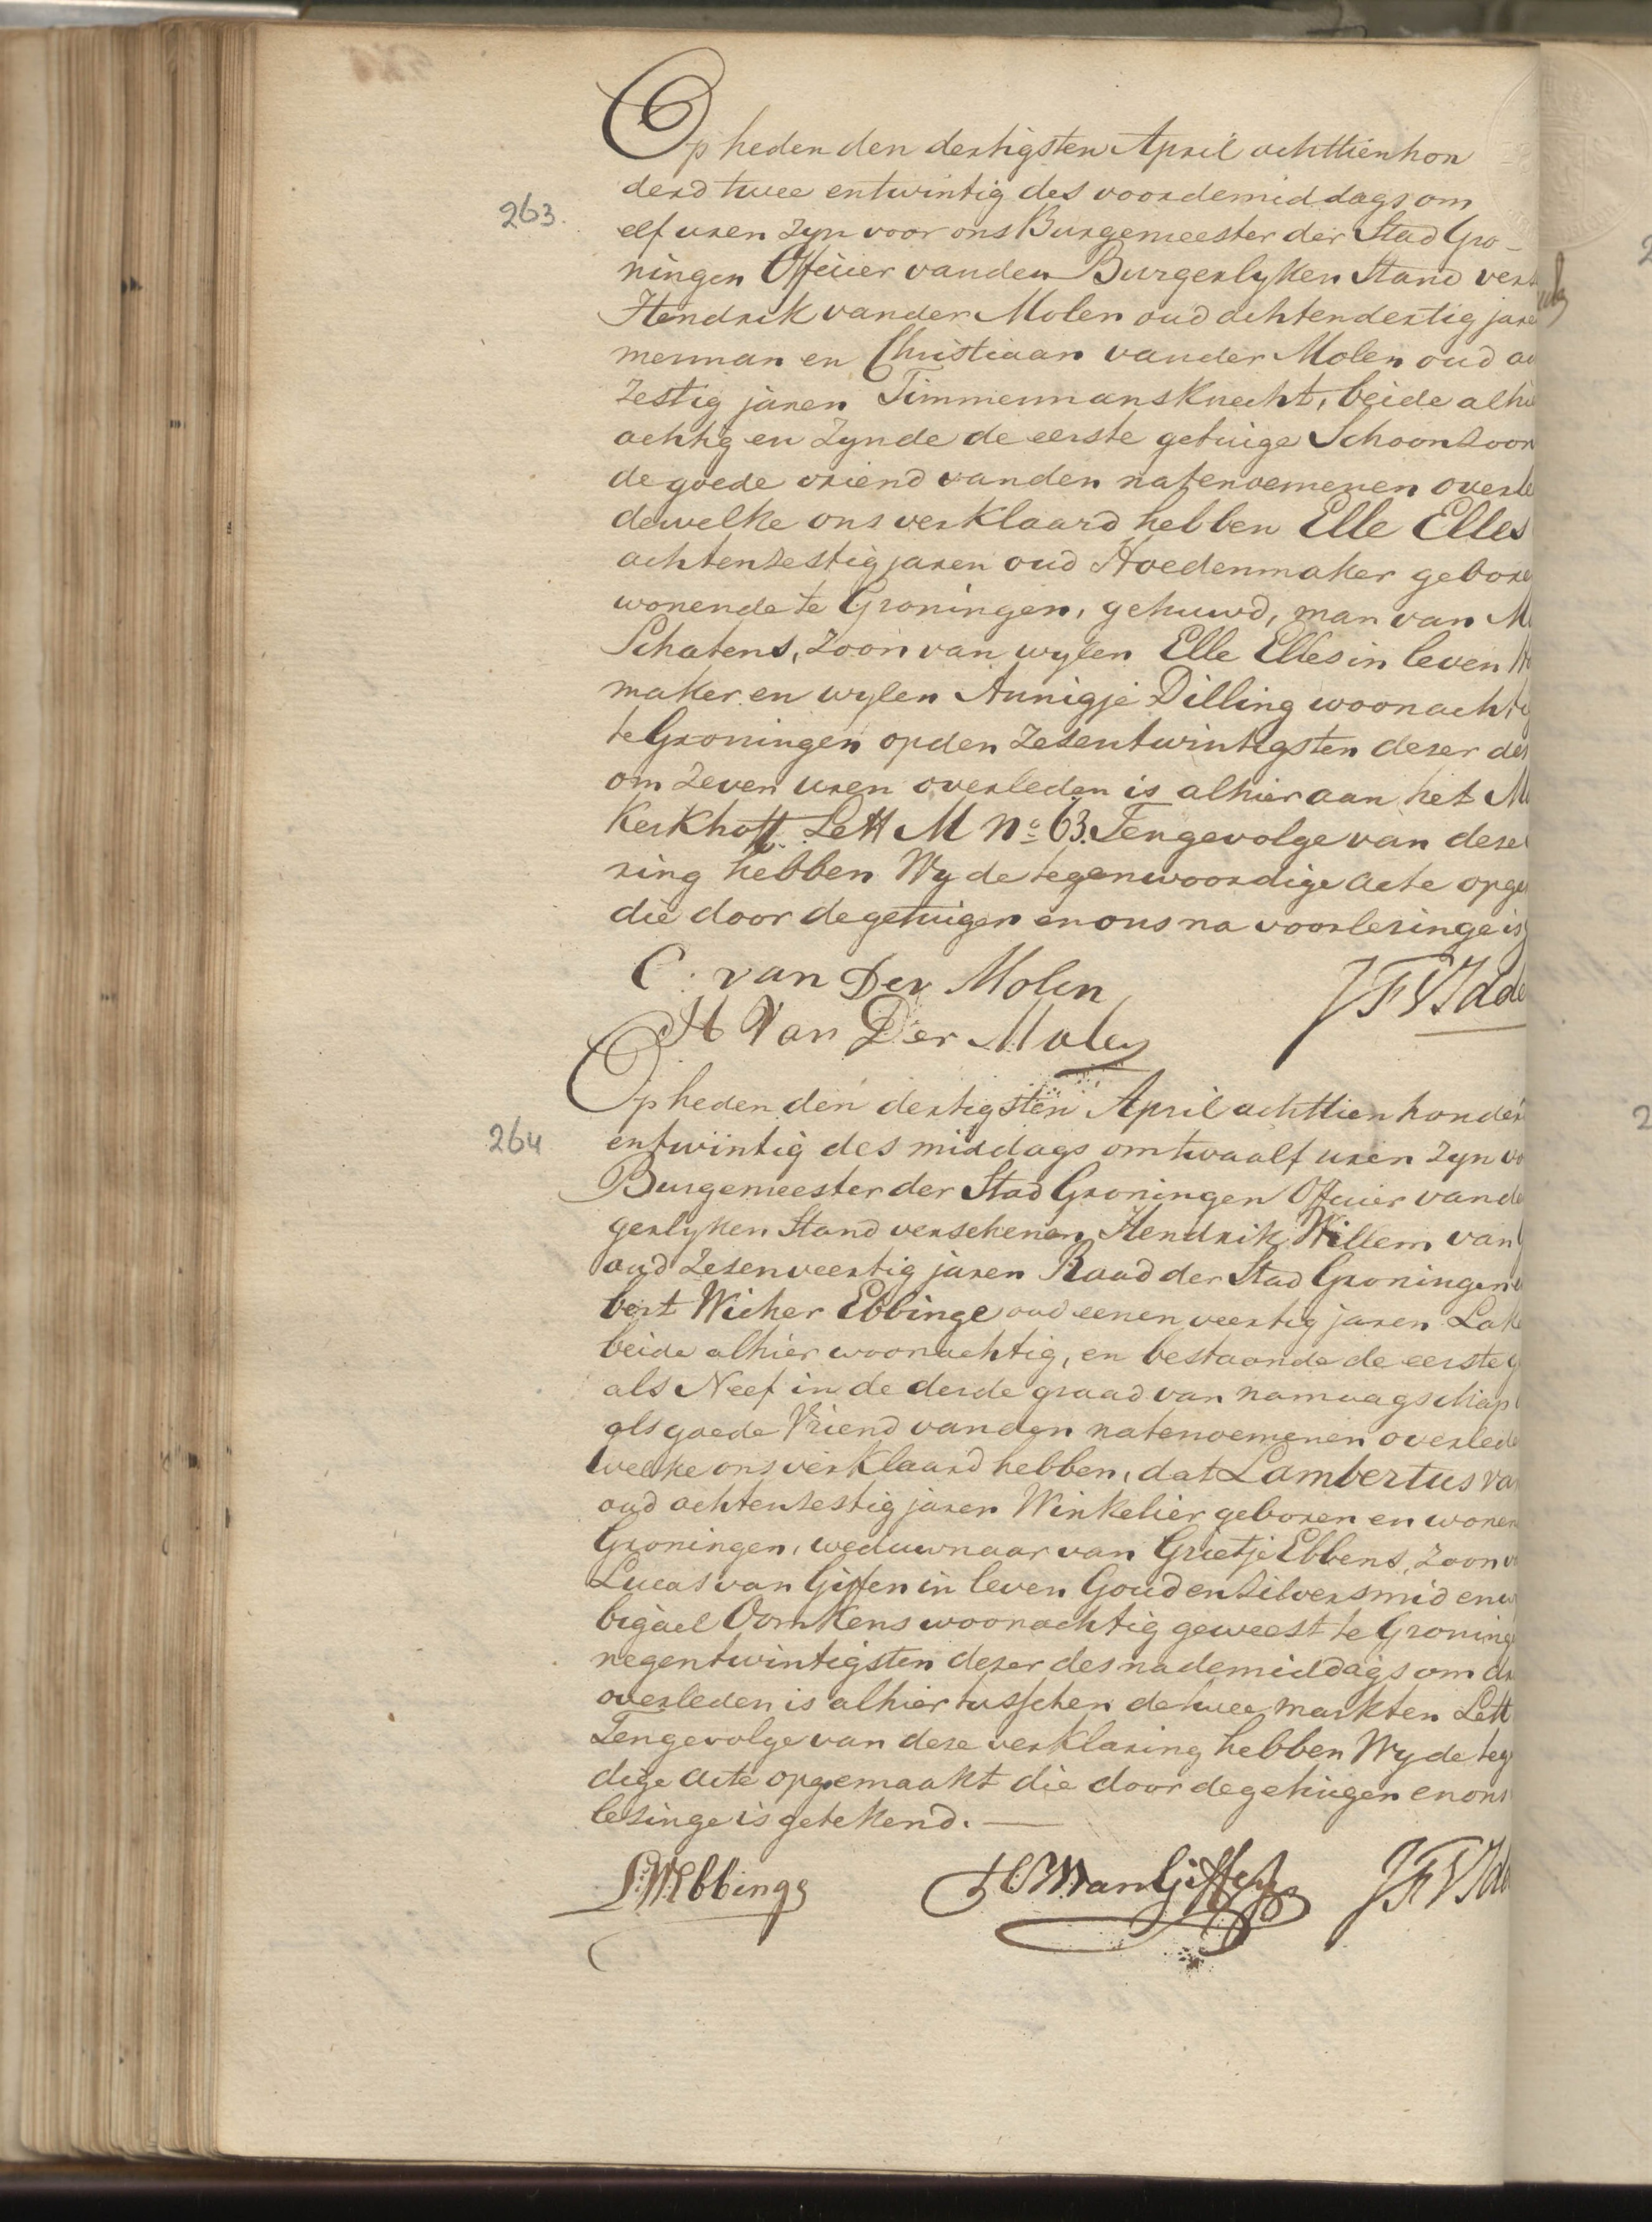 Op heden den dertigsten April achttienhon
derd twee entwintig des voordemiddags om
263.
elf uren Zyn voor ons Burgemeester der Stad Gro-
ningen Officier vanden Burgerlyken Stand vers
Hendrik vander Molen oud achtendertig jare
merman en Christiaan vander Molen oud ac
Zestig jaren Timmermansknecht, beide alhie
achtig en Zynde de eerste getuige Schoonzoon
de goede vriend vanden natenoemenen overle
dewelke ons verklaard hebben Elle Elles
achtenzestig jaren oud Hoedenmaker gebore
wonende te Groningen, gehuwd, man van M
Schatens, Zoon van wylen Elle Elles in leven H
maker en wylen Annigje Dilling woonachti
te Groningen opden Zesentwintigsten dezer des
om Zeven uren overleden is alhier aan het M
Kerkhoff Lett M No 63. Tengevolge van deze
ring hebben Wy de tegenwoordige acte opge
die door de getuigen en ons na voorlezinge is
C. van Der Molen
J F V Idde
H Van Der Molen
Op heden den dertigsten April achttienhonder
264
entwintig des middags om twaalf uren Zyn vo
Burgemeester der Stad Groningen Officier vande
gerlyken Stand verschenen Hendrik Willem van
oud Zesenveertig jaren Raad der Stad Groningen
bert Wicher Ebbinge oud eenenveertig jaren Lake
beide alhier woonachtig, en bestaande de eerste g
als Neef in de derde graad van namaagschap
als goede Vriend vanden natenoemenen overlede
welke ons verklaard hebben, dat Lambertus van
oud achtenzestig jaren Winkelier geboren en wonen
Groningen, weduwnaar van Grietje Ebbens, Zoon v
Lucas van Giffen in leven Goud en Zilversmid en w
bigael Oomkens woonachtig geweest te Groninge
negentwintigsten dezer des nademiddags om dr
overleden is alhier tusschen de twee markten Lett
Tengevolge van deze verklaring hebben Wy de teg
dige acte opgemaakt die door de getuigen en ons
lezinge is getekend. —
L:W:Ebbinge
H W van Giffen
J F V Idde